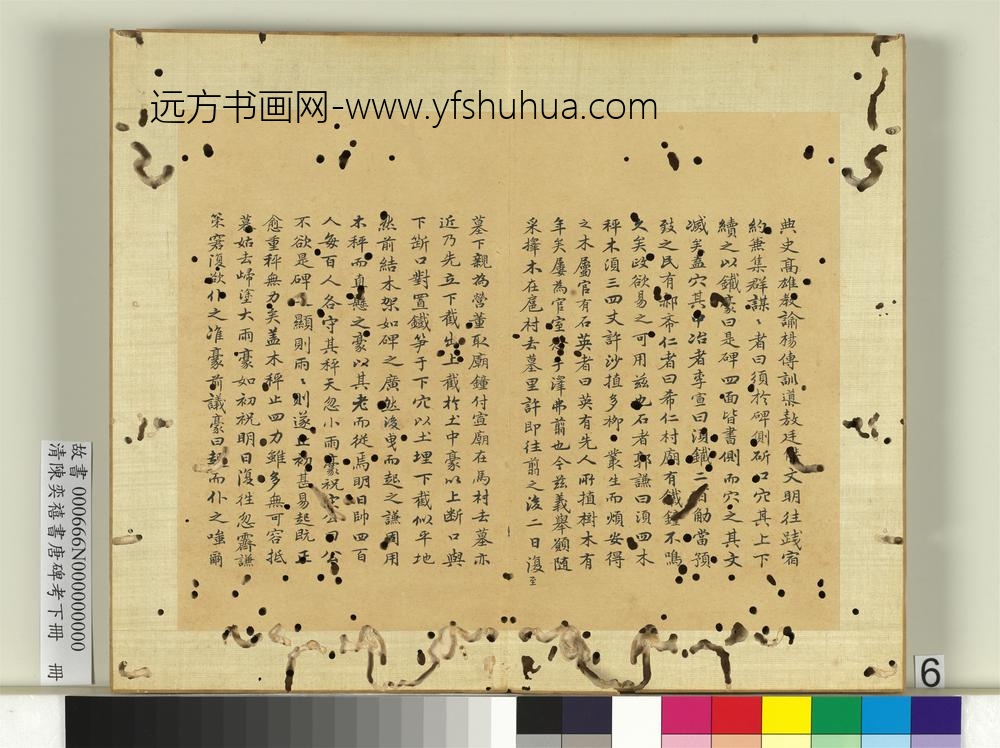 远方书画网-www.yfshuhua.com
典史高雄教諭楊傳訓導敖廷文明往践宿
約無集群謀〻者曰須於碑側斫口穴其上下
續之以鐵豪曰是碑四面皆書側而穴之其文
滅矣盖穴其中冶者李宣曰須鐵二百觔當預
弢之民有郝希仁者曰希仁村廟有鐵鐘不鳴
久矣政欲易之可用兹也石者郭謙曰須四木
秤木須三四丈許沙植多柳叢生而煩安得
之木屬官有石英者曰英有先人所植樹木有
年矣屢為官室於弗翦也今兹義舉願隨
采擇木在扈村去墓里許即往翦之後二日復至
墓下親為營董取廟鐘付宣廟在馬村去墓亦
近乃先立下截出上截於土中豪以上断口與
下断口對置鐵笋于下穴以土埋下截似平地
然前結木架如碑之廣然後曳而起之謙周用
木秤而直懸之豪以其老而從焉明日帥四百
人每百人各守其秤天忽小雨豪祝字公曰公
不欲是碑顯則雨〻則遂止初甚易起既正
愈重秤無力矣盖木秤止四力雖多無可容抵
莫姑去歸塗大雨豪如初祝明日復往忽霽謙
策窘復欲仆之准豪前議豪曰起而仆之嘩爾
故書000666N000000000
清陳奕禧書唐碑考下冊 冊
6